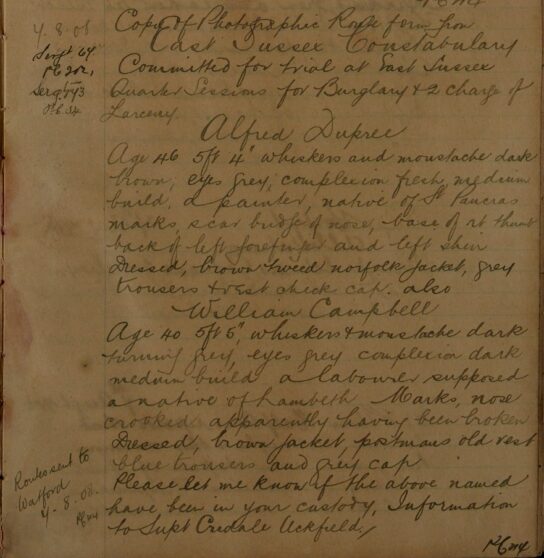 4.8.08
Copy of Photographic Route form from
East Sussex Constabulary
Committed for trial at East Sussex
Quarter Sessions for Burglary & 2 charge of
Larceny
Alfred Dupree
Age 46 5ft 4" whiskers and moustache dark
brown, eyes grey, complexion fresh, medium
build, a painter, native of St Pancras
marks, scar bridge of nose, base of rt thumb
back of left forefinger and left shin
Dressed, brown tweed norfolk jacket, grey
trousers & vest check cap. also
William Campbell
Age 40 5ft 5", whiskers & moustache dark
turning grey, eyes grey complexion dark
medium build a labourer supposed
a native of Lambeth Marks, nose
crooked apparently having been broken
Dressed, brown jacket, postmans old vest
blue trousers and grey cap
Please let me know if the above named
have been in your custody, Information
to Supt Uckfield,
Routes sent to
Watford
4.8.08.